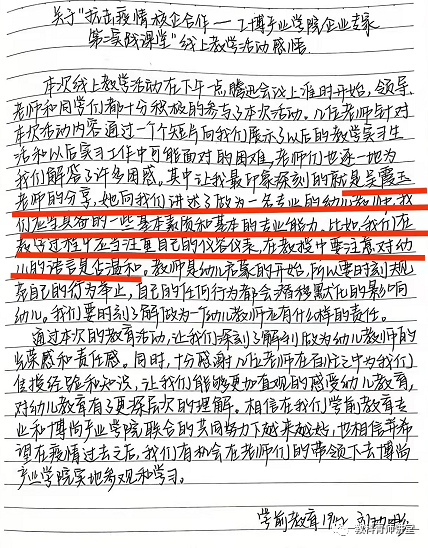 关于"抗击疫情校企合作——了博产业学院企业专家
第二实践课堂"线上教学活动感悟.
本次线上教学活动在下午一点腾迅会议上准时开始,领导、
老师和同学们都十分积极的参与了本次活动。几位老师针对
本次活动内容通过一个个短片向我们展示了以后的教学实习生
活和以后实习工作中可能面对的困难,老师们也逐一地为
我们解答了许多困惑。其中让我最印象深刻的就是吴霞玉
老师的分享,她向我们讲述了做为一名专业的幼儿教师,我
们应当具备的一些基本素质和基本的专业能力。比如,我们在
教学过程中应当注重自己的仪容仪表,在教授中要注意对幼
儿的语言是否温和。教师是幼儿启蒙的开始,所以要时刻规
束自己的行为举止,自己的任何行为都会潜移默化的影响
幼儿。我们要时刻了解做为一个幼儿教师应有什么样的责任。
通过本次的教育活动,让我们深刻了解到做为幼儿教师的
光荣感和责任感。同时,十分感谢几位老师在百忙之中为我们
传授经验和知识,让我们能够更加直观的感受幼儿教育,
对幼儿教育有了更深层次的理解。相信在我们学前教育专
业和博尚产业学院联合的共同努力下越来越好,也相信并希
望在疫情过去之后,我们有机会在老师们的带领下去博尚
产业学院实地参观和学习。
学前教育19
教科育师讲堂